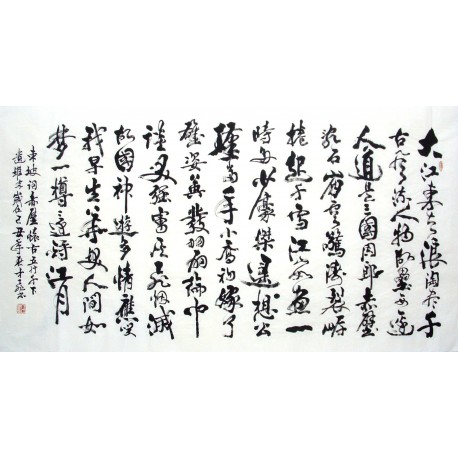 大江東去浪淘盡千
古風流人物故壘西邊
人道是三國周郎赤壁
亂石崩雲驚濤裂岸
捲起千雪江山如畫一
時多少豪傑遙想公
瑾當年小喬初嫁了
雄姿英發羽扇綸巾
談笑強虜灰飛烟滅
故國神遊多情應笑
我早生華髮人間如
夢一樽還酹江月
東坡詞赤壁懷古
歲在己丑年